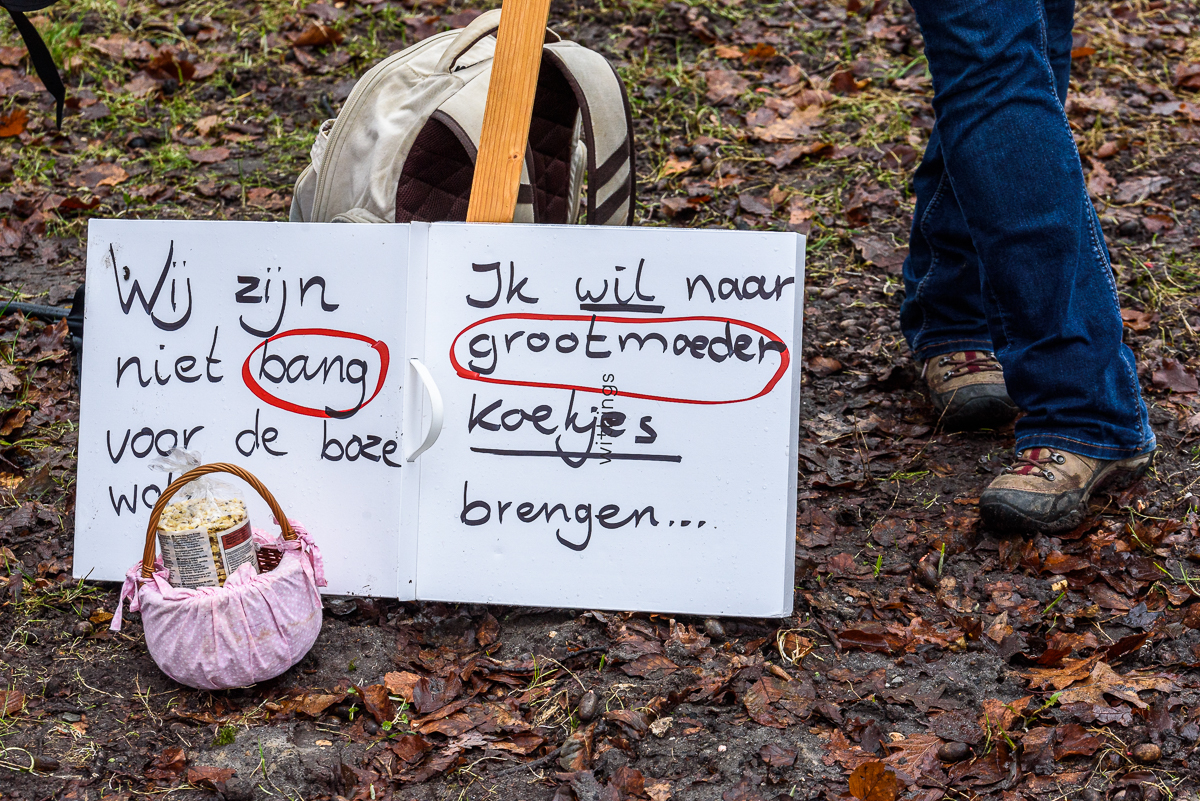 Wij zijn
niet bang
voor de boze
Ik wil naar
grootmoeder
koekjes
brengen...